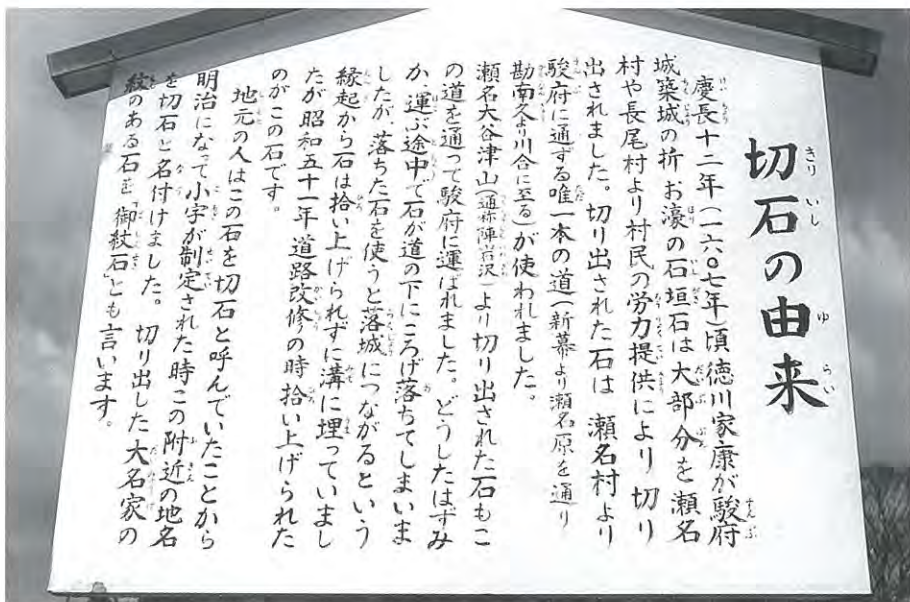 切石の由来
慶長十二年(一六〇七年)頃徳川家康が駿府
城築城の折 お濠の石垣石は大部分を瀬名
村や長尾村より村民の労力提供により 切り
出されました。切り出された石は 瀬名村より
駿府に通ずる唯一本の道(新幕より瀬名原を通り
勘南久より川合に至る)が使われました。
瀬名大谷津山(通称陣岩沢)より切り出された石もこ
の道を通って駿府に運ばれました。どうしたはずみ
か、運ぶ途中で石が道の下にころげ落ちてしまいま
したが、落ちた石を使うと落城につながるという
縁起から石は拾い上げられずに溝に埋っていまし
たが昭和五十一年道路改修の時拾い上げられた
のがこの石です。
地元の人はこの石を切石と呼んでいたことから
明治になって小字が制定された時この附近の地名
を切石と名付けました。切り出した大名家の
紋のある石を「御紋石」とも言います。